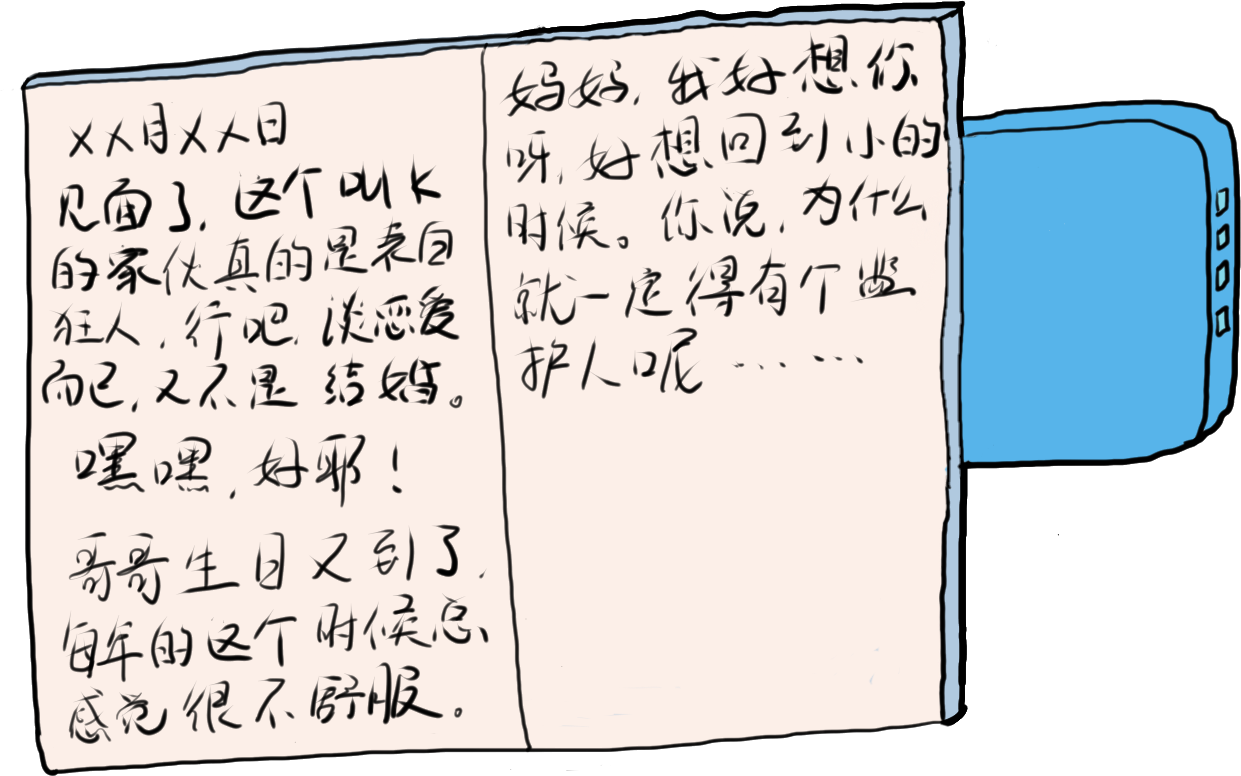 XX月XX日
见面了，这个叫K
的家伙真的是表白
狂人，行吧，谈恋爱
而已，又不是结婚。
嘿嘿，好耶！
哥哥生日又到了，
每年的这个时候总
感觉很不舒服。
妈妈，我好想你
呀，好想回到小的
时候。你说，为什么
就一定得有个监
护人呢……